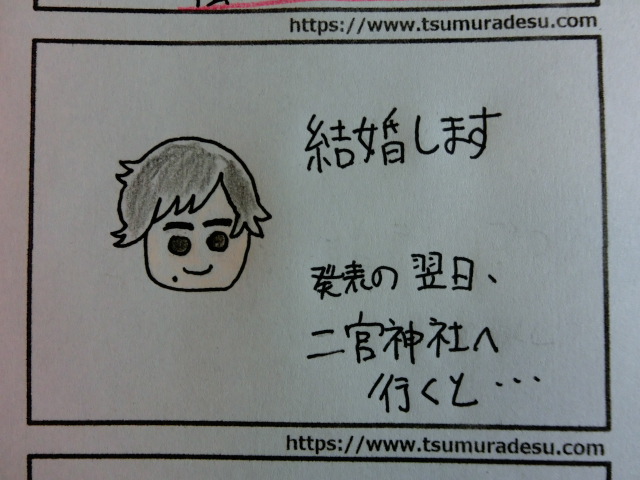 https://www.tsumuradesu.com
結婚します
発表の翌日、
二宮神社へ
行くと・・・
https://www.tsumuradesu.com